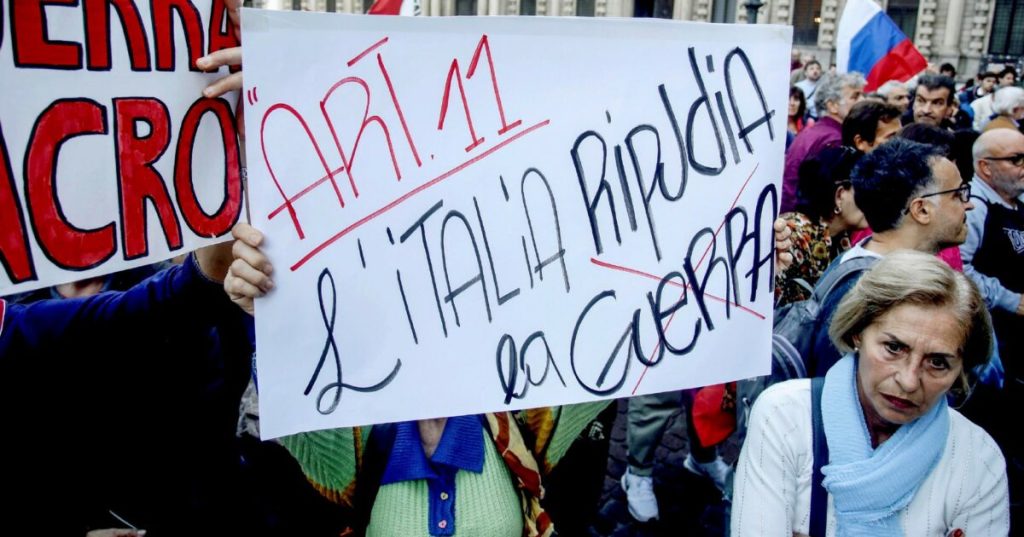 ERRA
ACRO
"ART. 11
L'ITALIA RIPUDIA
la GUERRA